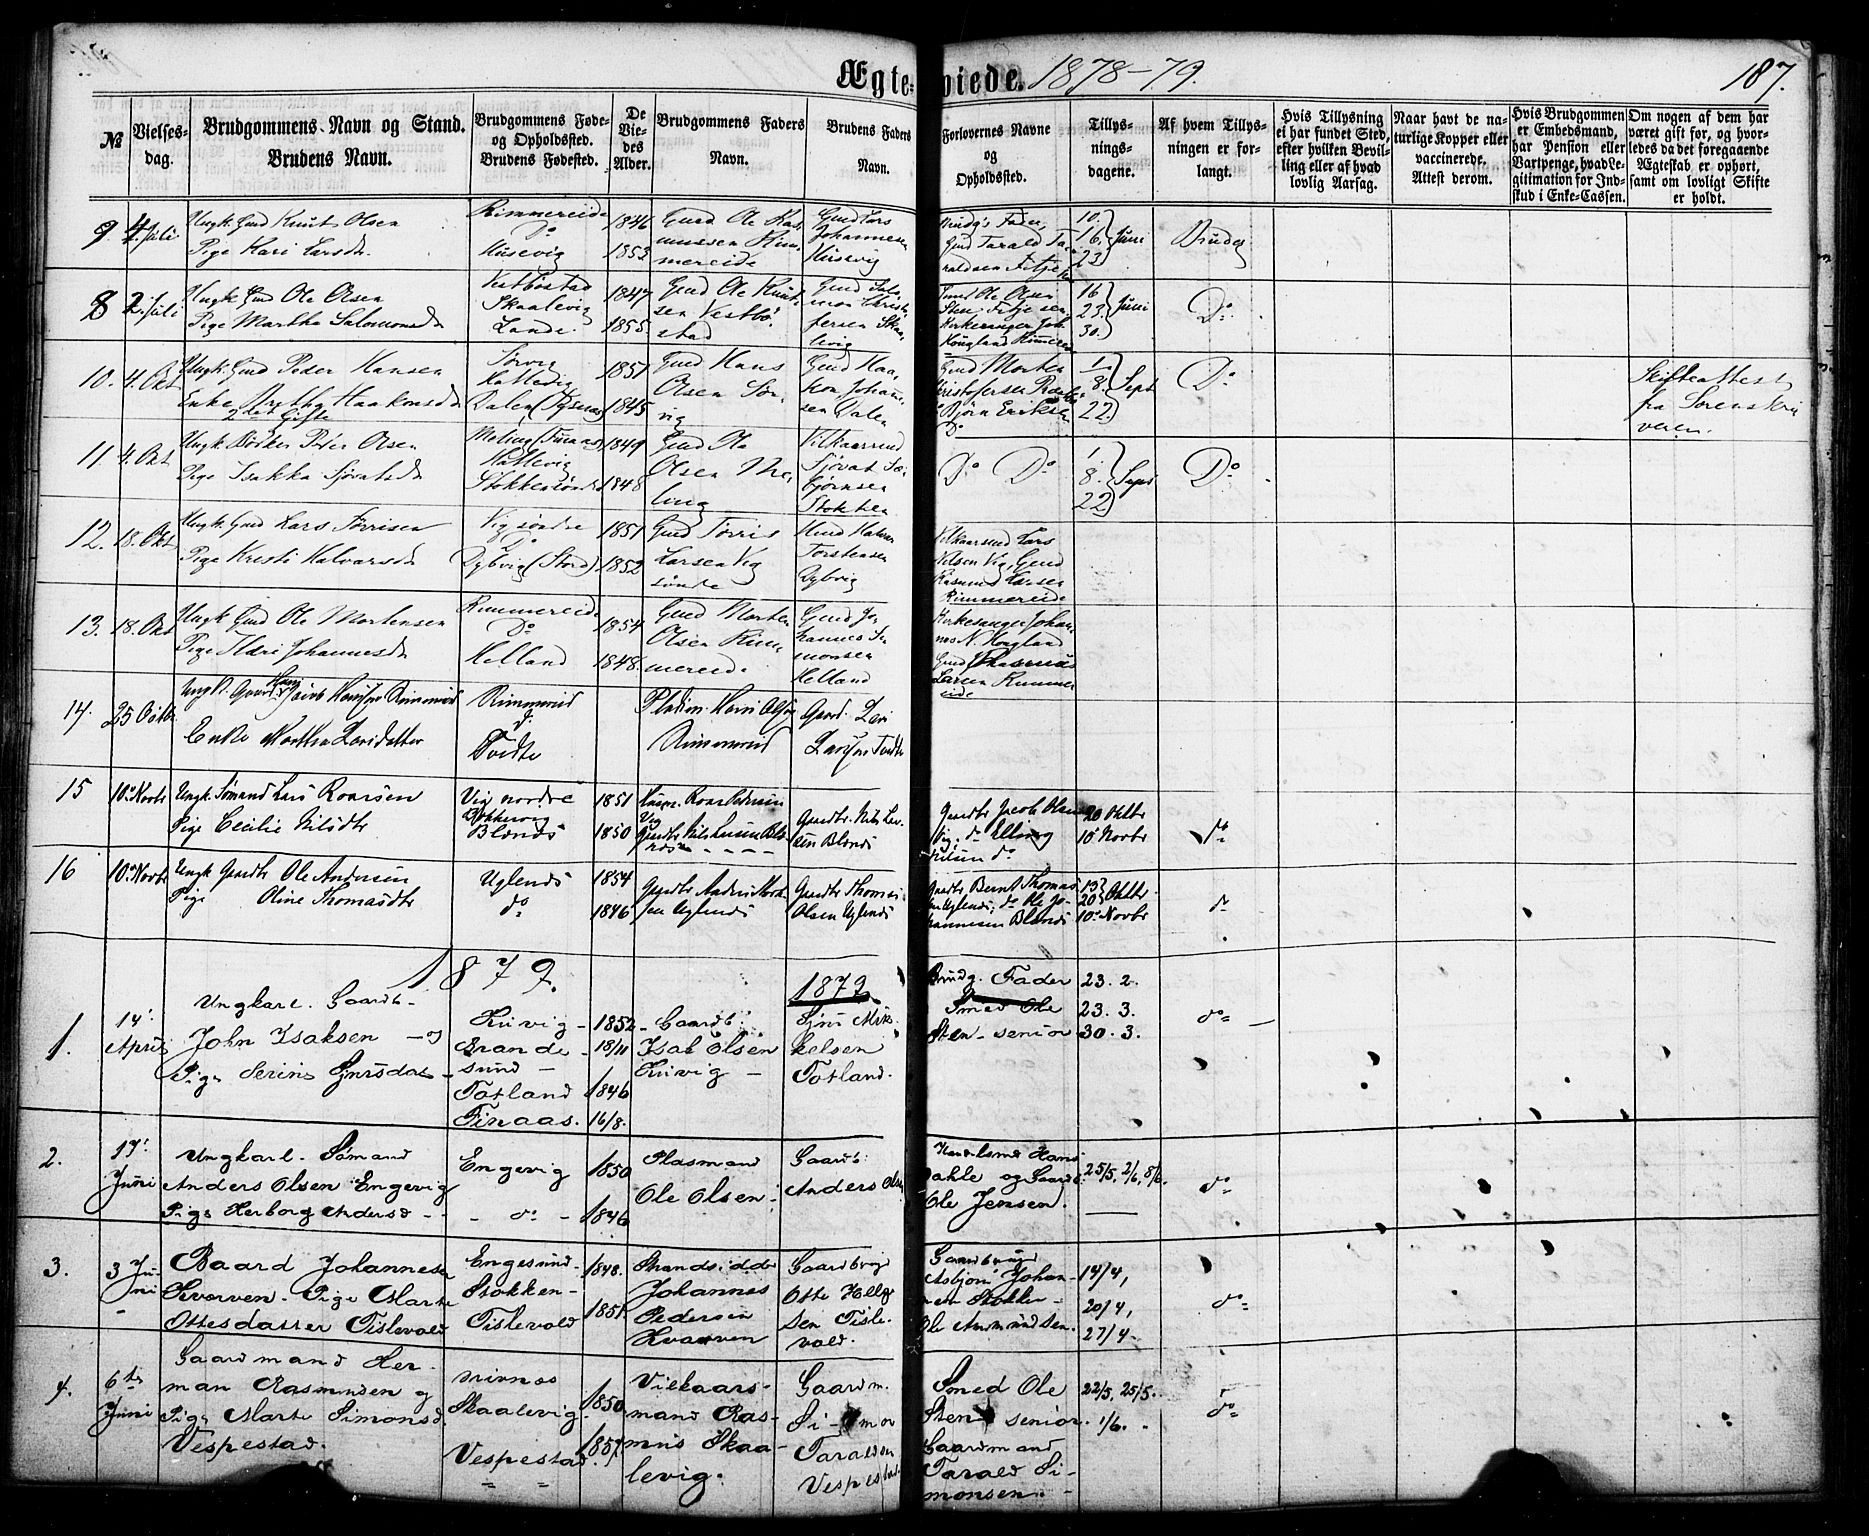 Ægte- viede. 1878-79. 187.
№ Vielses-dag. Brudgommens Navn og Stand. Brudens Navn. Brudgommens Føde- og Opholdssted. Brudens Fødested. De Vie-des Alder. Brudgommens Faders Navn. Brudens Faders Navn. Forlovernes Navne og Opholdssted. Tillys-nings-dagene. Af hvem Tillys-ningen er for-langt. Hvis Tillysning ei har fundet Sted, efter hvilken Bevil-ling eller af hvad lovlig Aarsag. Naar havt de na-turlige Kopper eller vaccinerede. Attest derom. Hvis Brudgommen er Embedsmand, har Pension eller Vartpenge, hvad Le-gitimation for Ind-skud i Enke-Cassen. Om nogen af dem har været gift for, og hvor-ledes da det foregaaende Ægteskab er ophørt, samt om lovligt Skifte er holdt.
9 4. Juli Ungk. Gmd Knut Olsen Pige Kari Larsdr. Rimmereide Do Husevig 1846 1853 Gmd Ole Ras-mussen Rim-mereide Gmd Lars Johannesen Husevig Brudg's Fader, Gmd Tarald Ta-raldsen Fitje 10. 16. 23. Juni Brudg
8 2. Juli Ungk. Gmd Ole Olsen Pige Martha Salomonsdr Vestbøstad Skaalevig Lande 1847 1855. Gmd Ole Knut-sen Vestbø-stad Gmd Salo-mon Christo-fersen Skaa-levig Smed Ole Olsen Sten Fitje sen. Kirkesanger Joh. Hougland Rimmereide 16 23. 30. Juni Do.
10. 4. Okt Ungk. Gmd Peder Hansen Enke Brytha Haakonsdr 2det Gifte Sørvig Hattevig Dalen (Tysnes) 1851 1845 Gmd Hans Olsen Sør-vig Gmd Haa-kon Johanne-sen Dale Gmd Morten Kristofersen Bjørn Eriksen Do 1. 8. 22. Sept Do. Skifteattest fra Sorenskri veren.
11. 4. Okt Ungk. Bødker Peder Olsen Pige Isakka Sjovatsdr Meling (Finaas) Hattevig Stokken 1849 1848 Gmd Ole Olsen Me-ling Vilkaarsmd Sjovat Tor-bjørnsen Stokken Do Do. 1. 8. 22 Sept Do.
12. 18. Okt Ungk. Gmd Lars Tørrisen Pige Kresti Halvarsdr Vig søndre Do Dybvig (Stord) 1851 1852 Gmd Tørris Larsen Vig søndre Hmd Halvor Torstensen Dybvig Vilkaarsmd Lars Nilsen Vig, Gmd Rasmus Larsen Rimmereide
13. 18. Okt Ungk. Gmd Ole Mortensen Pige Mari Johannesdr Rimmereide Do Helland 1854 1848. Gmd Morten Olsen Rim-mereide Gmd Jo-hannes Si-monsen Helland Kirkesanger Johan-nes N. Hougland Gmd Rasmus Larsen Rimmer-eide
14. 25 Oktbr Ungk. Gaard Jacob Hansen Rimmereid Enke Martha Larsdatter Rimmereid do. Tvedte Pladsm. Hans Olsen Rimmereid Gaard. Lars Larsen Tvedte
15 10de Novbr Ungk. Sømand Lars Roarsen Pige Cecilie Nilsdtr Vig nordre Blænds 1851 1850 Husm. Roar Pedersen Vig Gaardbr. Nils Larsen Blænds Gaardbr. Jacob Olsen Vig, do Elling Nilsen do. 20 Oktbr 10 Novbr do
16 10de Novbr Ungk Gaardbr Ole Andersen Pige Oline Thomasdtr Uglenes do 1854 1846 Gaardbr Anders sen Uglenes Gaardbr. Thomas Olsen Uglenes Gaardbr. Bernt Thomas-sen Uglenes; do Ole Jo-hannesen Blænds 13 20 Oktbr. 10de Novbr do.
1879. 1879.
1. 14' April Ungkarl. Gaardb- John Isaksen - og Pige Serine Sjursdat- Huvig - Brande-sund - Totland Finaas. 1852 18/11 1846 16/8. Gaardb: Isak Olsen Huvig - Sjur Mik-kelsen Totland. Brudg. Fader Smed Ole Sten - senior 23. 2. 23. 3. 30. 3. do -
2. 17' Juni Ungkarl. Sømand Anders Olsen Engevig Pige Herborg Andersd - - Engevig - do - 1850 1846 Plasmand Ole Olsen - Gaardb: Anders Handelsmd Hans Dahle og Gaardb: Ole Jensen. 25/5, 2/6, 8/6. do
3. 3 Juni Baard Johannesen Kvorven. Pige Marte Ottesdatter Tislevold Engesund - Stokken - Tislevold 1848. 1851. Strandsidder Johannes Pedersen Kvarven Gaardbrugr Otte Helge sen Tisle-vold. Gaardbrugr Asbjørn Johan-nesen Stokken - Ole Ammundsen. 14/4, 20/4, 27/4. do
4. 6te Juni Gaardmand Her-man Rasmusen og Pige Marte Simonsd. Vespestad. Skaalevig Vespestad. 1850 1857 Vilkaars-mand Ras-mus Skaa-levig. Gaardm. Simon Taraldsen Vespestad Smed Ole Sten senior. Gaardmand Tarald Si-monsen. 22/5. 25/5. 1/6. do